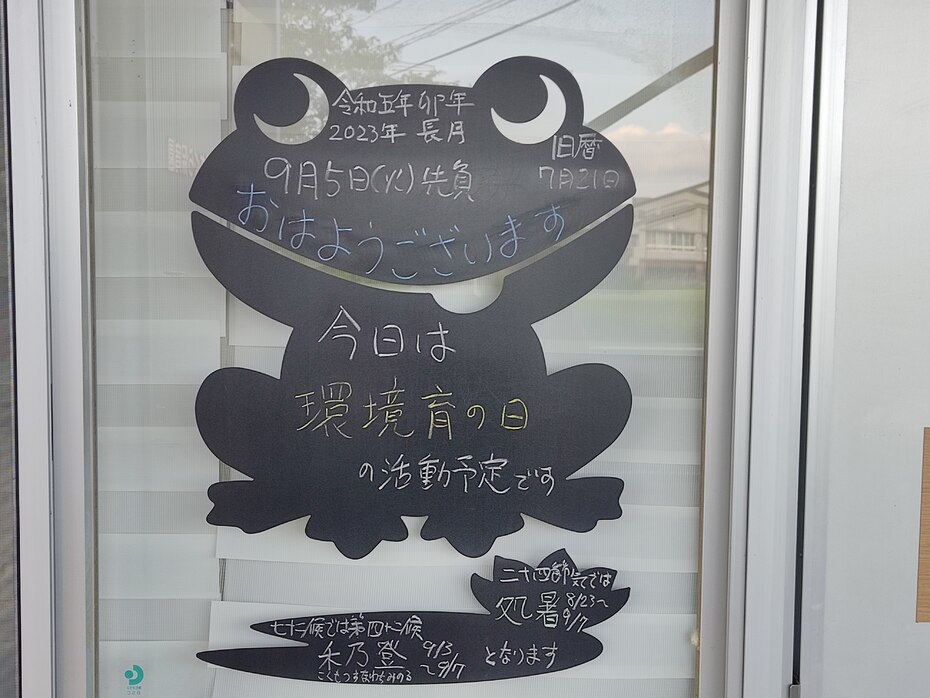 令和五年 卯年
2023年 長月
旧暦
7月21日
9月5日(火)先負
おはようございます
今日は
環境育の日
の活動予定です
二十四節気では
処暑 8/23〜
9/7
七十二候では第四十二候
禾乃登 9/3
〜9/7
こくものすなわちみのる
となります